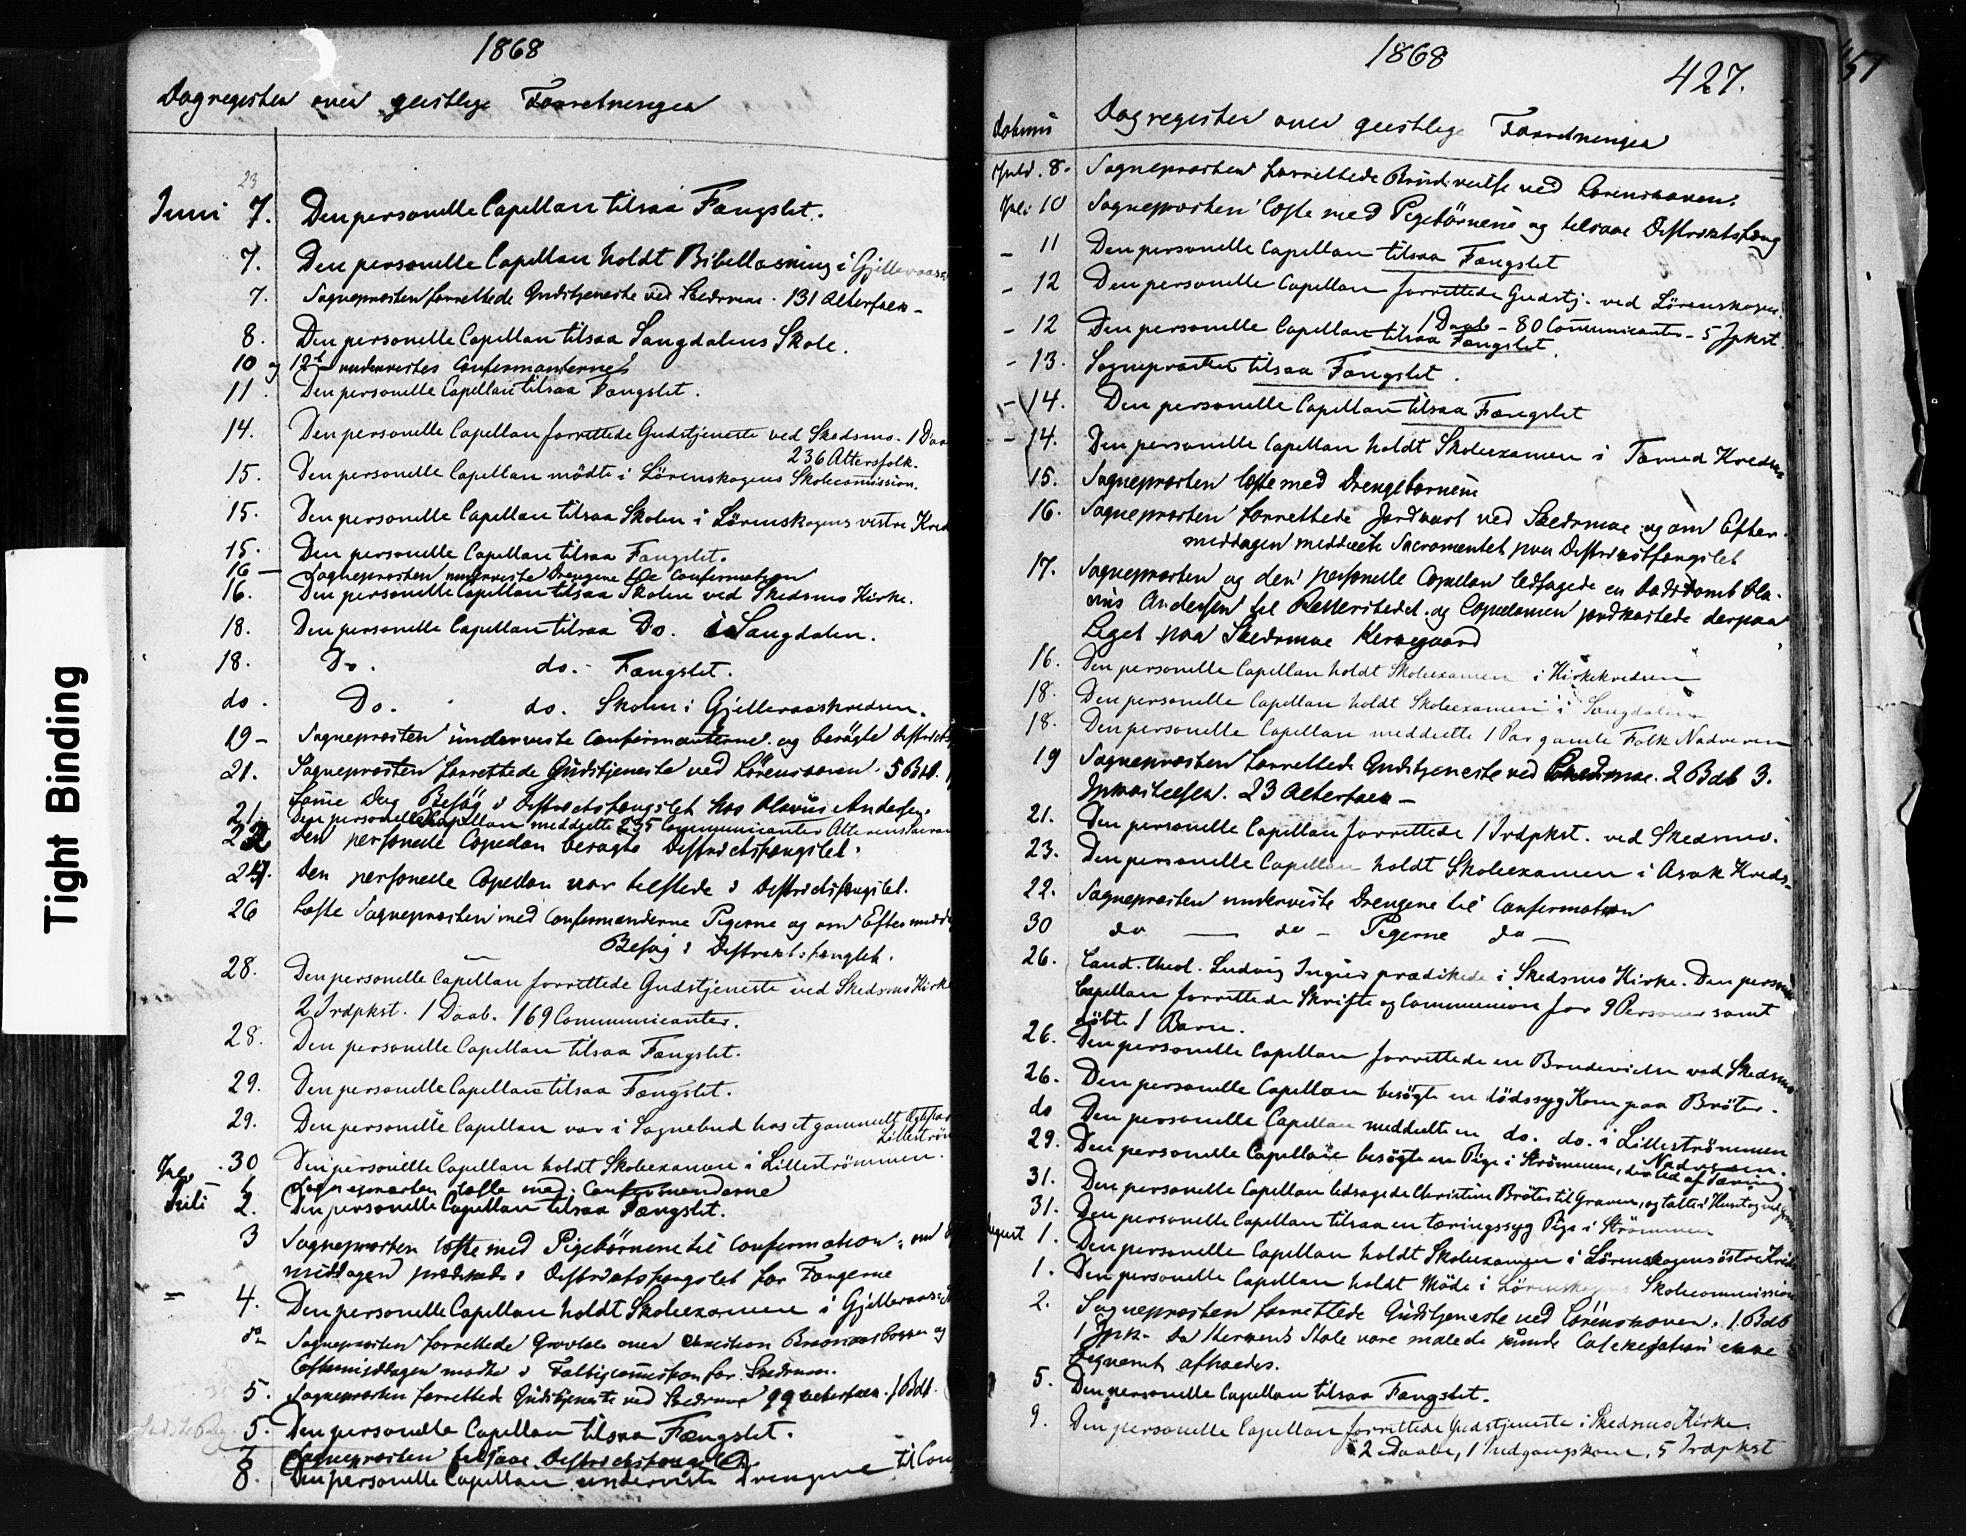 1868
Dagregister over geistlige Forretninger
23
Juni 7. Den personelle Capellan tilsaa Fængslet.
7. Den personelle Capellan holdt Bibellæsning i Gjelleraasen
7. Sognepresten forrettede Gudstjeneste ved Skedsmoe. 131 Alterfolk
8. Den personelle Capellan tilsaa Sangdalens Skole.
10 og 12te undervistes Confirmanterne
11. Den personelle Capellan tilsaa Fængslet.
14. Den personelle Capellan forrettede Gudstjeneste ved Skedsmo. 1 Daab
236 Altersfolk.
15. Den personelle Capellan mödte i Lörenskogens Skolecommission.
15. Den personelle Capellan tilsaa Skolen i Lörenskogens vestre Kred
15. Den personelle Capellan tilsaa Fængslet.
16 – Sognepresten underviste Drengene til Confirmation
16. Den personelle Capellan tilsaa Skolen ved Skedsmo Kirke.
18. Den personelle Capellan tilsaa Do. i Sangdalen.
18. Do. do. Fængslet.
do. Do. do. Skolen i Gjelleraaskredsen.
19 – Sognepresten underviste Confirmanterne og besøgte Distriktsf
21. Sognepresten forrettede Gudstjeneste ved Lörenskoven. 5 Bdb.
Samme Dag Besøg i Distriktsfængslet hos Olavus Andersen.
21. Den personelle Capellan meddeelte 235 Communicanter Alterens Sacram
22 Den personelle Capellan besøgte Distriktsfængslet.
24. Den personelle Capellan var tilstede i Distriktsfængslet.
26 Læste Sognepresten med Confirmanderne Pigerne og om Eftermidd
Besøg i Distriktsfængslet.
28. Den personelle Capellan forrettede Gudstjeneste ved Skedsmo Kirke
2 Jrdpkst. 1 Daab. 169 Communicanter.
28. Den personelle Capellan tilsaa Fængslet.
29. Den personelle Capellan tilsaa Fængslet.
29. Den personelle Capellan var i Sognebud hos et gammelt Ægtepar
Lilleström
30 Den personelle Capellan holdt Skoleexamen i Lilleströmmen.
Sognepresten læste med Confirmanderne
Juli 2. Den personelle Capellan tilsaa Fængslet.
3 Sognepresten læste med Pigebörnene til Confirmation, om Ef
middagen prædikede i Distriktsfængslet for Fangerne
– 4. Den personelle Capellan holdt Skoleexamen i Gjelleraasen
do Sognepresten forrettede Gravtale over og
Eftermiddagen mødte i Fattigcommission for Skedsmoe.
5. Sognepresten forrettede Gudstjeneste ved Skedsmoe 99 Alterfolk. 1 Bdb.
5. Den personelle Capellan tilsaa Fængslet.
7. Sognepresten tilsaae Distriktsfængslet
8. Den personelle Capellan underviste Drengene til Con
1868
427.
Datums Dagregister over geistlige Forretninger
Juli. 8. Sognepresten forrettede Brudevielse ved Lorenskoven.
Juli 10 Sognepresten læste med Pigebørnene og tilsaae Distriktsfæng
– 11 Den personelle Capellan tilsaa Fængslet
– 12 Den personelle Capellan forrettede Gudstj. ved Lörenskogen.
1 Daab – 80 Communicanter – 5 Jpkst.
– 12 Den personelle Capellan tilsaa Fængslet.
– 13. Sognepresten tilsaa Fængslet.
– 14. Den personelle Capellan tilsaa Fængslet
– 14. Den personelle Capellan holdt Skoleexamen i Tærud Kredsen
15. Sognepresten læste med Drengebørnene
16. Sognepresten forrettede Jordkast ved Skedsmoe og om Efter-
middagen meddeelte Sacramentet paa Distriktsfængslet
17. Sognepresten og den personelle Capellan ledsagede en dødsdømt Ola-
vus Andersen til Retterstedet og Capellanen jordkastede derpaa
Liget paa Skedsmoe Kirkegaard
16. Den personelle Capellan holdt Skoleexamen i Kirkekredsen
18. Den personelle Capellan holdt Skoleexamen i Sangdalen
18. Den personelle Capellan meddeelte 1 Par gamle Folk Nadveren
19 Sognepresten forrettede Gudstjeneste ved Skedsmoe. 2 Bdb 3.
Jpkastelser. 23 Alterfolk –
21. Den personelle Capellan forrettede 1 Jrdpkst. ved Skedsmo.
23. Den personelle Capellan holdt Skoleexamen i Asak Kreds.
22. Sognepresten underviste Drengene til Confirmation
30 do — do – Pigerne do –
26. Cand. theol. Ludvig Ingier prædikede i Skedsmo Kirke. Den person
Capellan forrettede Skrifte og Communion for 9 Personer samt
döbte 1 Barn.
26. Den personelle Capellan forrettede en Brudevielse ved Skedsmo
26. Den personelle Capellan besögte en dödssyg Kone paa Bröter.
do Den personelle Capellan meddeelte en do. do. i Lilleströmmen
Nadveren.
29. Den personelle Capellan besögte en Pige i Strömmen, der led af Tæring
31. Den personelle Capellan ledsagede Christine Bröter til Graven, og talte i Huset og ved Graven
31. Den personelle Capellan tilsaa en tæringssyg Pige i Strömmen
August 1. Den personelle Capellan holdt Skoleexamen i Lörenskogens östre Kreds
1. Den personelle Capellan holdt Möde i Lörenskogens Skolecommission
2. Sognepresten forrettede Gudstjeneste ved Lörenskoven. 1 Bdb
1 Jpk – da Kirkens Stole vare malede kunde Catekesation ikke
beqvemt afholdes.
5. Den personelle Capellan tilsaa Fængslet.
9. Den personelle Capellan forrettede Gudstjeneste i Skedsmo Kirke
2 Daabe, 1 Indgangskone, 5 Jrdpkst
Tight Binding